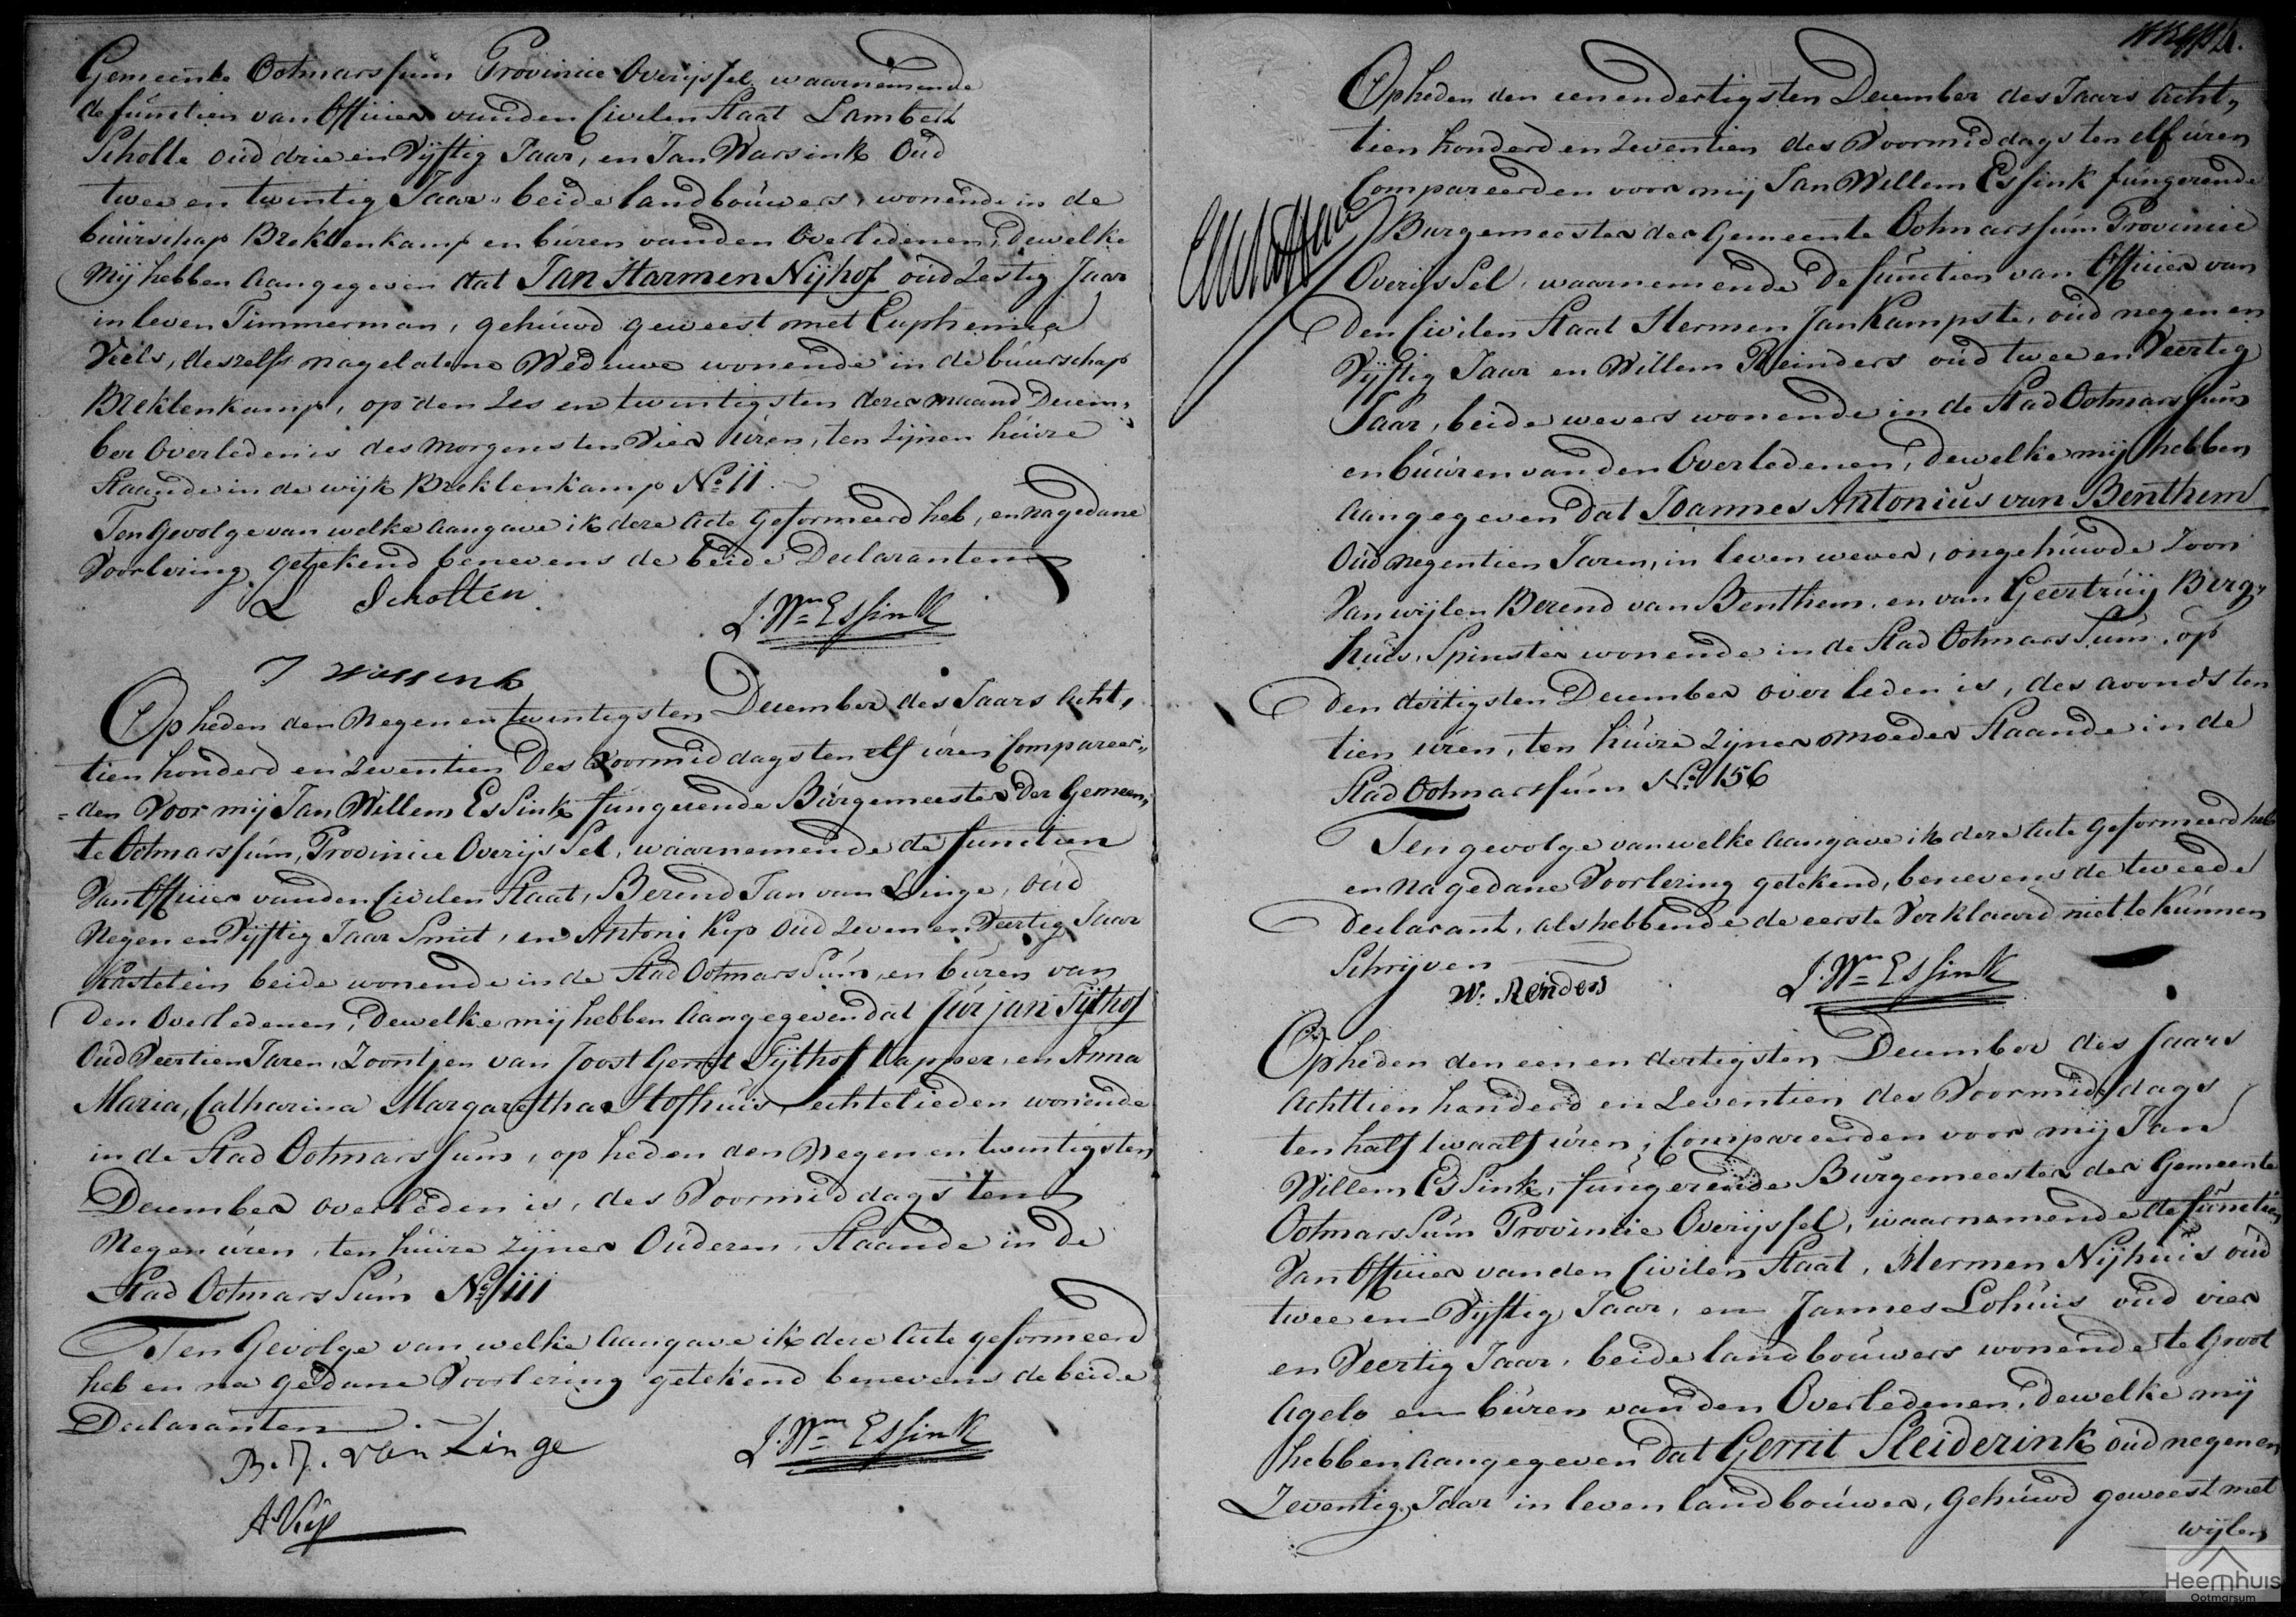 Gemeente Ootmarssum Provincie Overijssel, waarnemende
de functien van Officier van den Civilen Staat Lambert
Scholte oud drie en Vijftig Jaar, en Jan Warsink Oud
twee en twintig Jaar, beide landbouwers, wonende in de
buurschap Breklenkamp en buren van den Overledenen, dewelke
Mij hebben Aangegeven dat Jan Harmen Nijhof oud Zestig Jaar
in leven Timmerman, gehuwd geweest met Euphemia
deszelfs nagelatene Weduwe wonende in de buurschap
Breklenkamp, op den Zes en twintigsten dezer maand Decem,
ber Overleden is des Morgens ten Vier uren, ten Zijnen huize
Staande in de wijk Breklenkamp No 11.
Ten Gevolge van welke Aangave ik deze Acte Geformeerd heb, en na gedane
Voorlezing getekend benevens de beide Declaranten
L Scholten
J. Wm Essink
J Warsink
Op heden den Negen en twintigsten December des Jaars Acht,
tien honderd en Zeventien Des Voormiddags ten elf uren Compareer„
=den Voor mij Jan Willem Essink fungerende Burgemeester Der Gemeen„
te Ootmarssum, Provincie Overijssel, waarnemende de functien
Van Officier van den Civilen Staat, Berend Jan van Linge, Oud
Negen en Vijftig Jaar Smit, en Antoni Kip Oud Zeven en Veertig Jaar
Kastelein beide wonende in de Stad Ootmarssum, en buren van
Den Overledenen, Dewelke mij hebben Aangegeven dat Jurjan Tijthof
Oud Veertien Jaren, Zoontjen van Joost Gerrit Tijthof tapper, en Anna
Maria, Catharina Margaretha Hofhuis, echtelieden wonende
in de Stad Ootmarssum, op heden den Negen en twintigsten
December overleden is, des Voormiddags ten
Negen uren, ten huize zijner Ouderen, Staande in de
Stad Ootmarssum No 111
Ten Gevolge van welke Aangave ik deze Acte geformeerd
heb en na gedane Voorlezing getekend benevens de beide
Declaranten
B. J. van Linge
J. Wm Essink
A Kip
Op heden den een en dertigsten December des Jaars Acht„
tien honderd en Zeventien des Voormiddags ten elf uren
Compareerden voor mij Jan Willem Essink fungerende
Burgemeester der Gemeente Ootmarssum Provincie
Overijssel, waarnemende De functien van Officier van
Den Civilen Staat Hermen Jan Kampste, oud negen en
Vijftig Jaar en Willem Reinders oud twee en Veertig
Jaar, beide wevers wonende in de Stad Ootmarssum
en buuren van den Overledenen, Dewelke mij hebben
Aangegeven Dat Joannes Antonius van Benthem
Oud negentien Jaren, in leven wever, ongehuwde Zoon
Van wijlen Berend van Benthem, en van Geertruij Berg„
huis, Spinster wonende in de Stad Ootmarssum, op
Den dertigsten December overleden is, des avonds ten
tien uren, ten huize Zijner moeder Staande in de
Stad Ootmarssum No 156
Ten gevolge van welke Aangave ik deze Acte Geformeerd heb
en Na gedane Voorlezing getekend, benevens de tweede
Declarant, als hebbende de eerste Verklaard niet te kunnen
Schrijven
W. Renders
J. Wm Essink
Op heden den een en dertigsten December des Jaars
Achttien honderd en Zeventien des Voormiddags
ten half twaalf uren, Compareerden voor mij Jan
Willem Essink, fungerende Burgemeester der Gemeente
Ootmarssum Provincie Overijssel, waarnemende de functien
Van Officier van den Civilen Staat, Hermen Nijhuis oud
twee en Vijftig Jaar, en Jannes Lohuis oud vier
en Veertig Jaar, beide landbouwers wonende te Groot
Agelo en buren van den Overledenen, dewelke mij
hebben Aangegeven Dat Gerrit Sleiderink oud negen en
Zeventig Jaar in leven landbouwer, Gehuwd geweest met
wijlen
Heemhuis
Ootmarsum